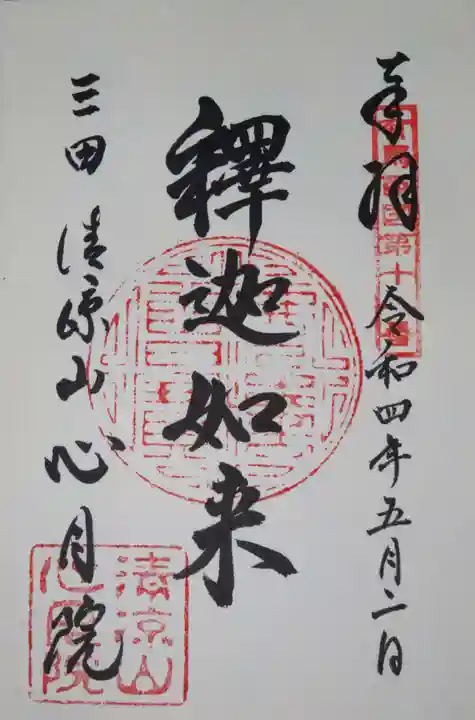 奉拝
令和四年五月二日
釋迦如来
三田 清凉山 心月院
第十
清凉山
心月院